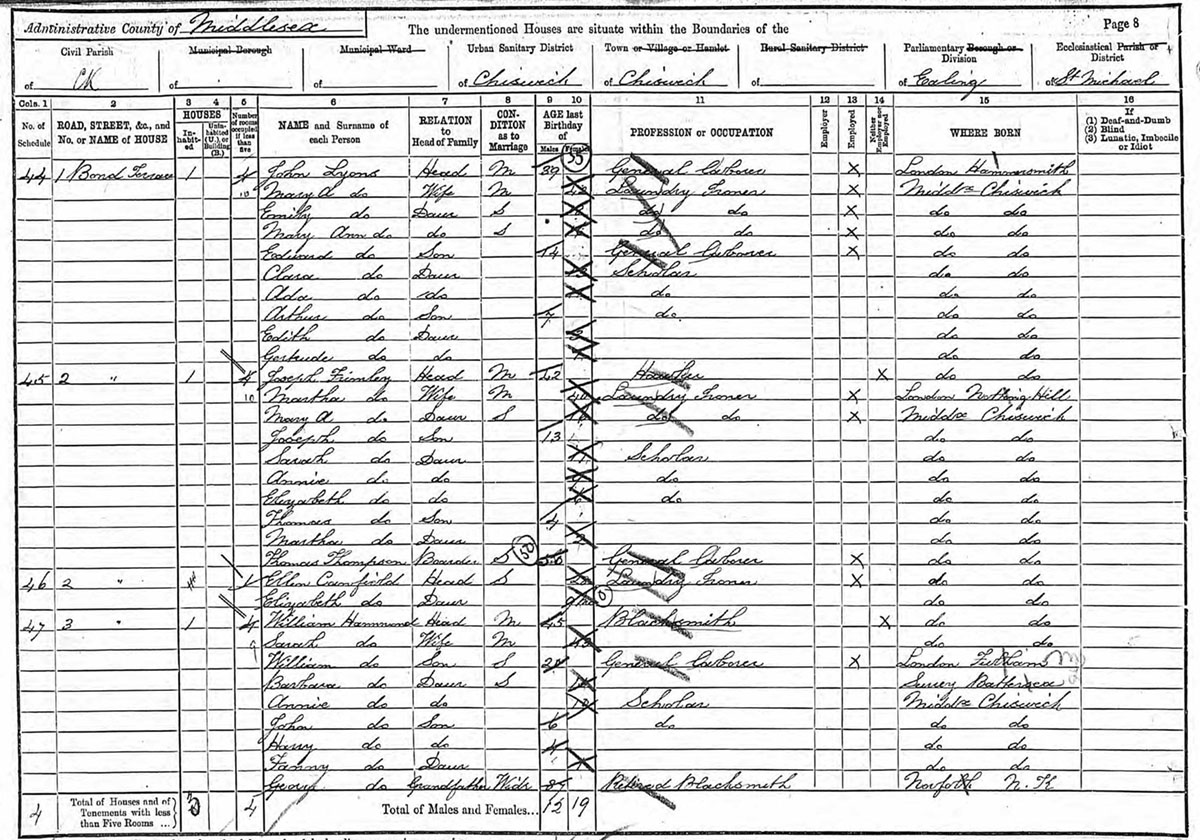 Administrative County of Middlesex The undermentioned Houses are situate within the Boundaries of the Page 8
Civil Parish Municipal Borough Municipal Ward Urban Sanitary District Town or Village or Hamlet Rural Sanitary District Parliamentary Borough or Division Ecclesiastical Parish or District
of of of of Chiswick of Chiswick of of Ealing of St Michael
Cols. 1 2 3 4 5 6 7 8 9 10 11 12 13 14 15 16
No. of Schedule ROAD, STREET, &c., and No. or NAME of HOUSE HOUSES Inhabited Uninhabited (U.), or Building (B.) Number of rooms occupied if less than five NAME and Surname of each Person RELATION to Head of Family CONDITION as to Marriage AGE last Birthday of Males Females PROFESSION or OCCUPATION Employer Employed Neither Employer nor Employed WHERE BORN If (1) Deaf-and-Dumb (2) Blind (3) Lunatic, Imbecile or Idiot
44 1 Bond Terrace 1 4 John Lyons Head M 39 General Laborer X London Hammersmith
10 Mary A do Wife M Laundry Ironer X Middx Chiswick
Emily do Daur S do do X do do
Mary Ann do do S do do X do do
Edward do Son 14 General Laborer X do do
Clara do Daur Scholar do do
Ada do do do do do
Arthur do Son 7 do do do
Edith do Daur do do
Gertrude do do do do
45 2 " 1 4 Joseph Frimley Head M 42 Hawker X do do
10 Martha do Wife M 40 Laundry Ironer X London Notting Hill
Mary A do Daur S 16 do do X Middx Chiswick
Joseph do Son 13 do do
Sarah do Daur 11 Scholar do do
Annie do do do do do
Elizabeth do do 6 do do do
Thomas do Son 4 do do
Martha do Daur 2 do do
Thomas Thompson Boarder S 50 General Laborer X do do
46 2 " 1 Ellen Cranfield Head S Laundry Ironer X do do
Elizabeth do Daur do do
47 3 " 1 4 William Hammond Head M 45 Blacksmith X do do
9 Sarah do Wife M 43 do do
William do Son S 20 General Laborer X London Fulham
Barbara do Daur S Surrey Battersea
Annie do do 10 Scholar Middx Chiswick
John do Son 6 do do do
Harry do do 4 do do
Fanny do Daur 1 do do
George do Grandfather Widr Retired Blacksmith Norfolk N. K
4 Total of Houses and of Tenements with less than Five Rooms ... 3 4 Total of Males and Females... 12 19